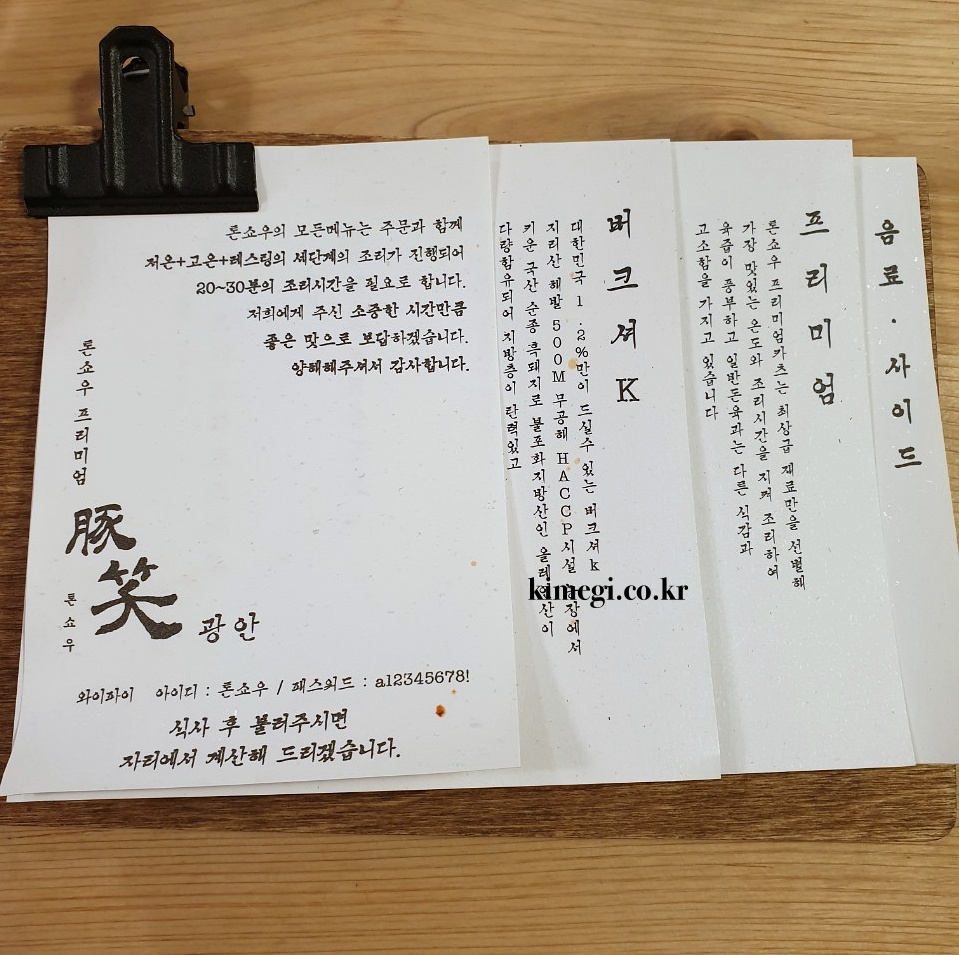 톤쇼우의 모든메뉴는 주문과 함께
저온+고온+레스팅의 세단계의 조리가 진행되어
20~30분의 조리시간을 필요로 합니다.
저희에게 주신 소중한 시간만큼
좋은 맛으로 보답하겠습니다.
양해해주셔서 감사합니다.
톤쇼우 프리미엄
豚笑
톤쇼우
광안
와이파이 아이디 : 톤쇼우 / 패스워드 : a12345678!
식사 후 불러주시면
자리에서 계산해 드리겠습니다.
버크셔K
대한민국 1.2%만이 드실수 있는 버크셔k
지리산 해발 500M 무공해 HACCP시설 에서
키운 국산 순종 흑돼지로 불포화지방산인 올레인산이
다량함유되어 지방층이 탄력있고
프리미엄
톤쇼우 프리미엄카츠는 최상급 재료만을 선별해
가장 맛있는 온도와 조리시간을 지켜 조리하여
육즙이 풍부하고 일반돈육과는 다른 식감과
고소함을 가지고 있습니다
음료·사이드
kimegi.co.kr